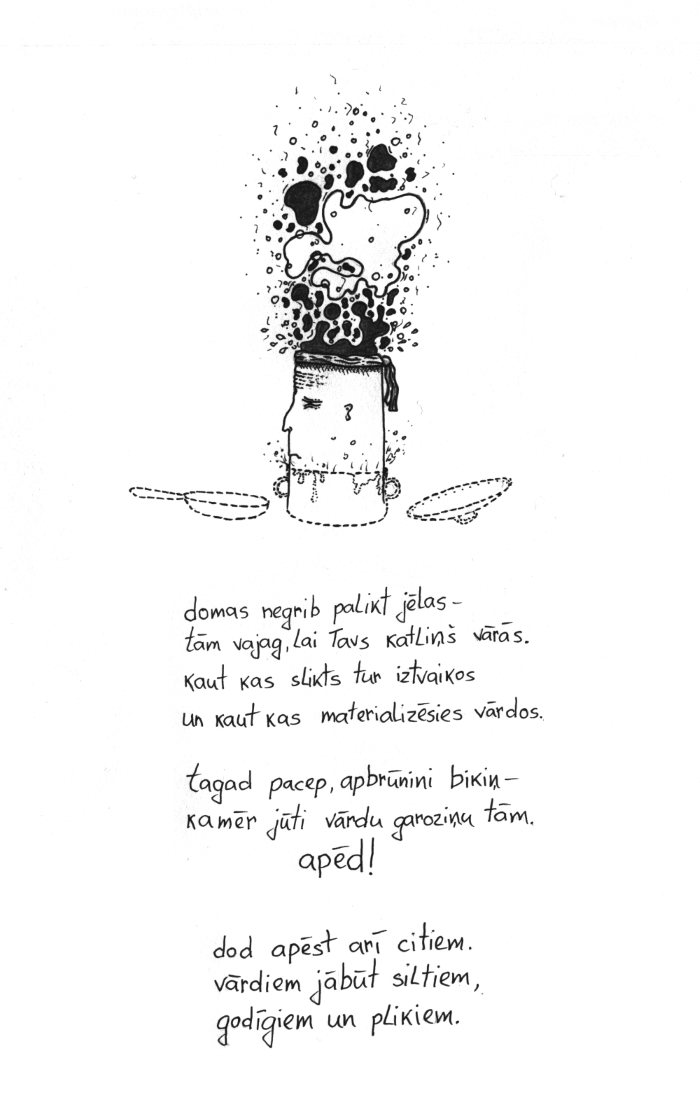 domas negrib palikt jēlas–
tām vajag, lai Tavs katliņš vārās.
kaut kas slikts tur iztvaikos
un kaut kas materializēsies vārdos.
tagad pacep, apbrūnini bikiņ–
kamēr jūti vārdu garoziņu tām.
apēd!
dod apēst arī citiem.
vārdiem jābūt siltiem,
godīgiem un plikiem.